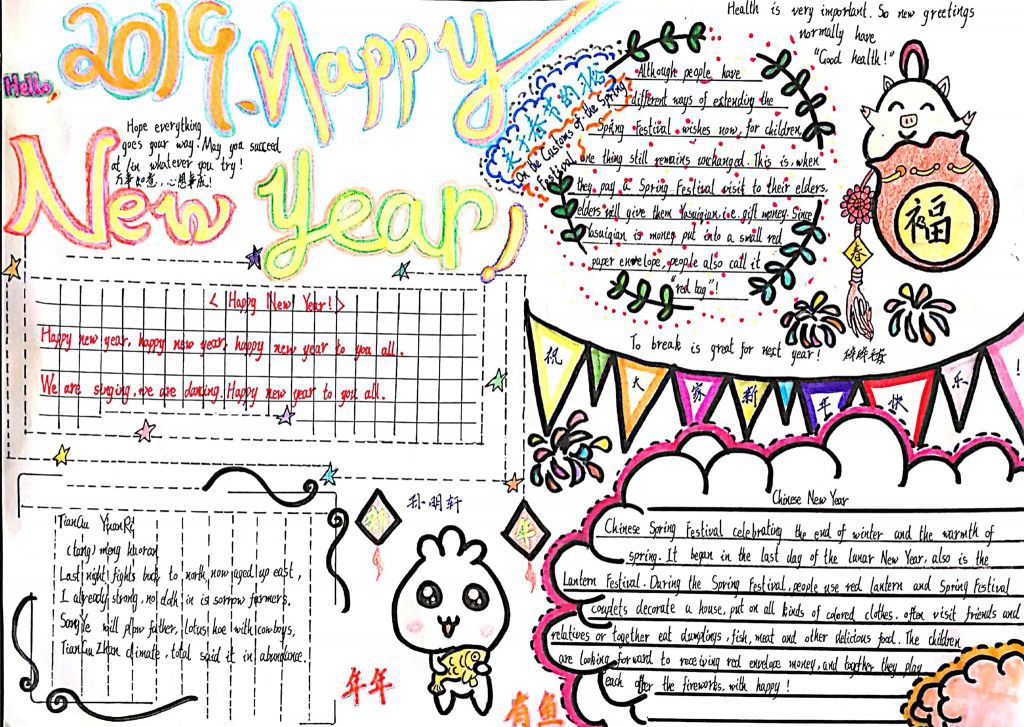 Hello, 2019. Happy
New Year!
Hope everything
goes your way. May you succeed
at /in whatever you try!
万事如意,心想事成!
关于春节的习俗
On the Customs of the Spring
Festival
Although people have
different ways of extending the
Spring Festival wishes now, for children,
one thing still remains unchanged. This is, when
they pay a Spring Festival visit to their elders,
elders will give them Yasuiqian, i.e. gift money. Since
Yasuiqian is money put into a small red
paper envelope, people also call it
"red bag"!
Health is very important. So new greetings
normally have
"Good health!"
福
春
To break is great for next year! 碎碎平安
祝大家新年快乐!
< Happy New Year! >
Happy new year, happy new year, happy new year to you all.
We are singing, we are dancing. Happy new year to you all.
TianGu YuanRi
(tang) meng haoran
Last night! fights back to north, now aged up east,
I already strong, no ddh in is sorrow farmers.
Sang Ye will plow father, lotus hoe with cowboys,
TianGu Zhan climate, total said it in abundance.
孙明轩
年年
有鱼
Chinese New Year
Chinese Spring Festival celebrating the end of winter and the warmth of
spring. It began in the last day of the lunar New Year, also is the
Lantern Festival. During the Spring Festival, people use red lantern and Spring Festival
couplets decorate a house, put on all kinds of colored clothes, often visit friends and
relatives or together eat dumplings, fish, meat and other delicious food. The children
are looking forward to receiving red envelope money, and together they play
each other the fireworks, with happy!